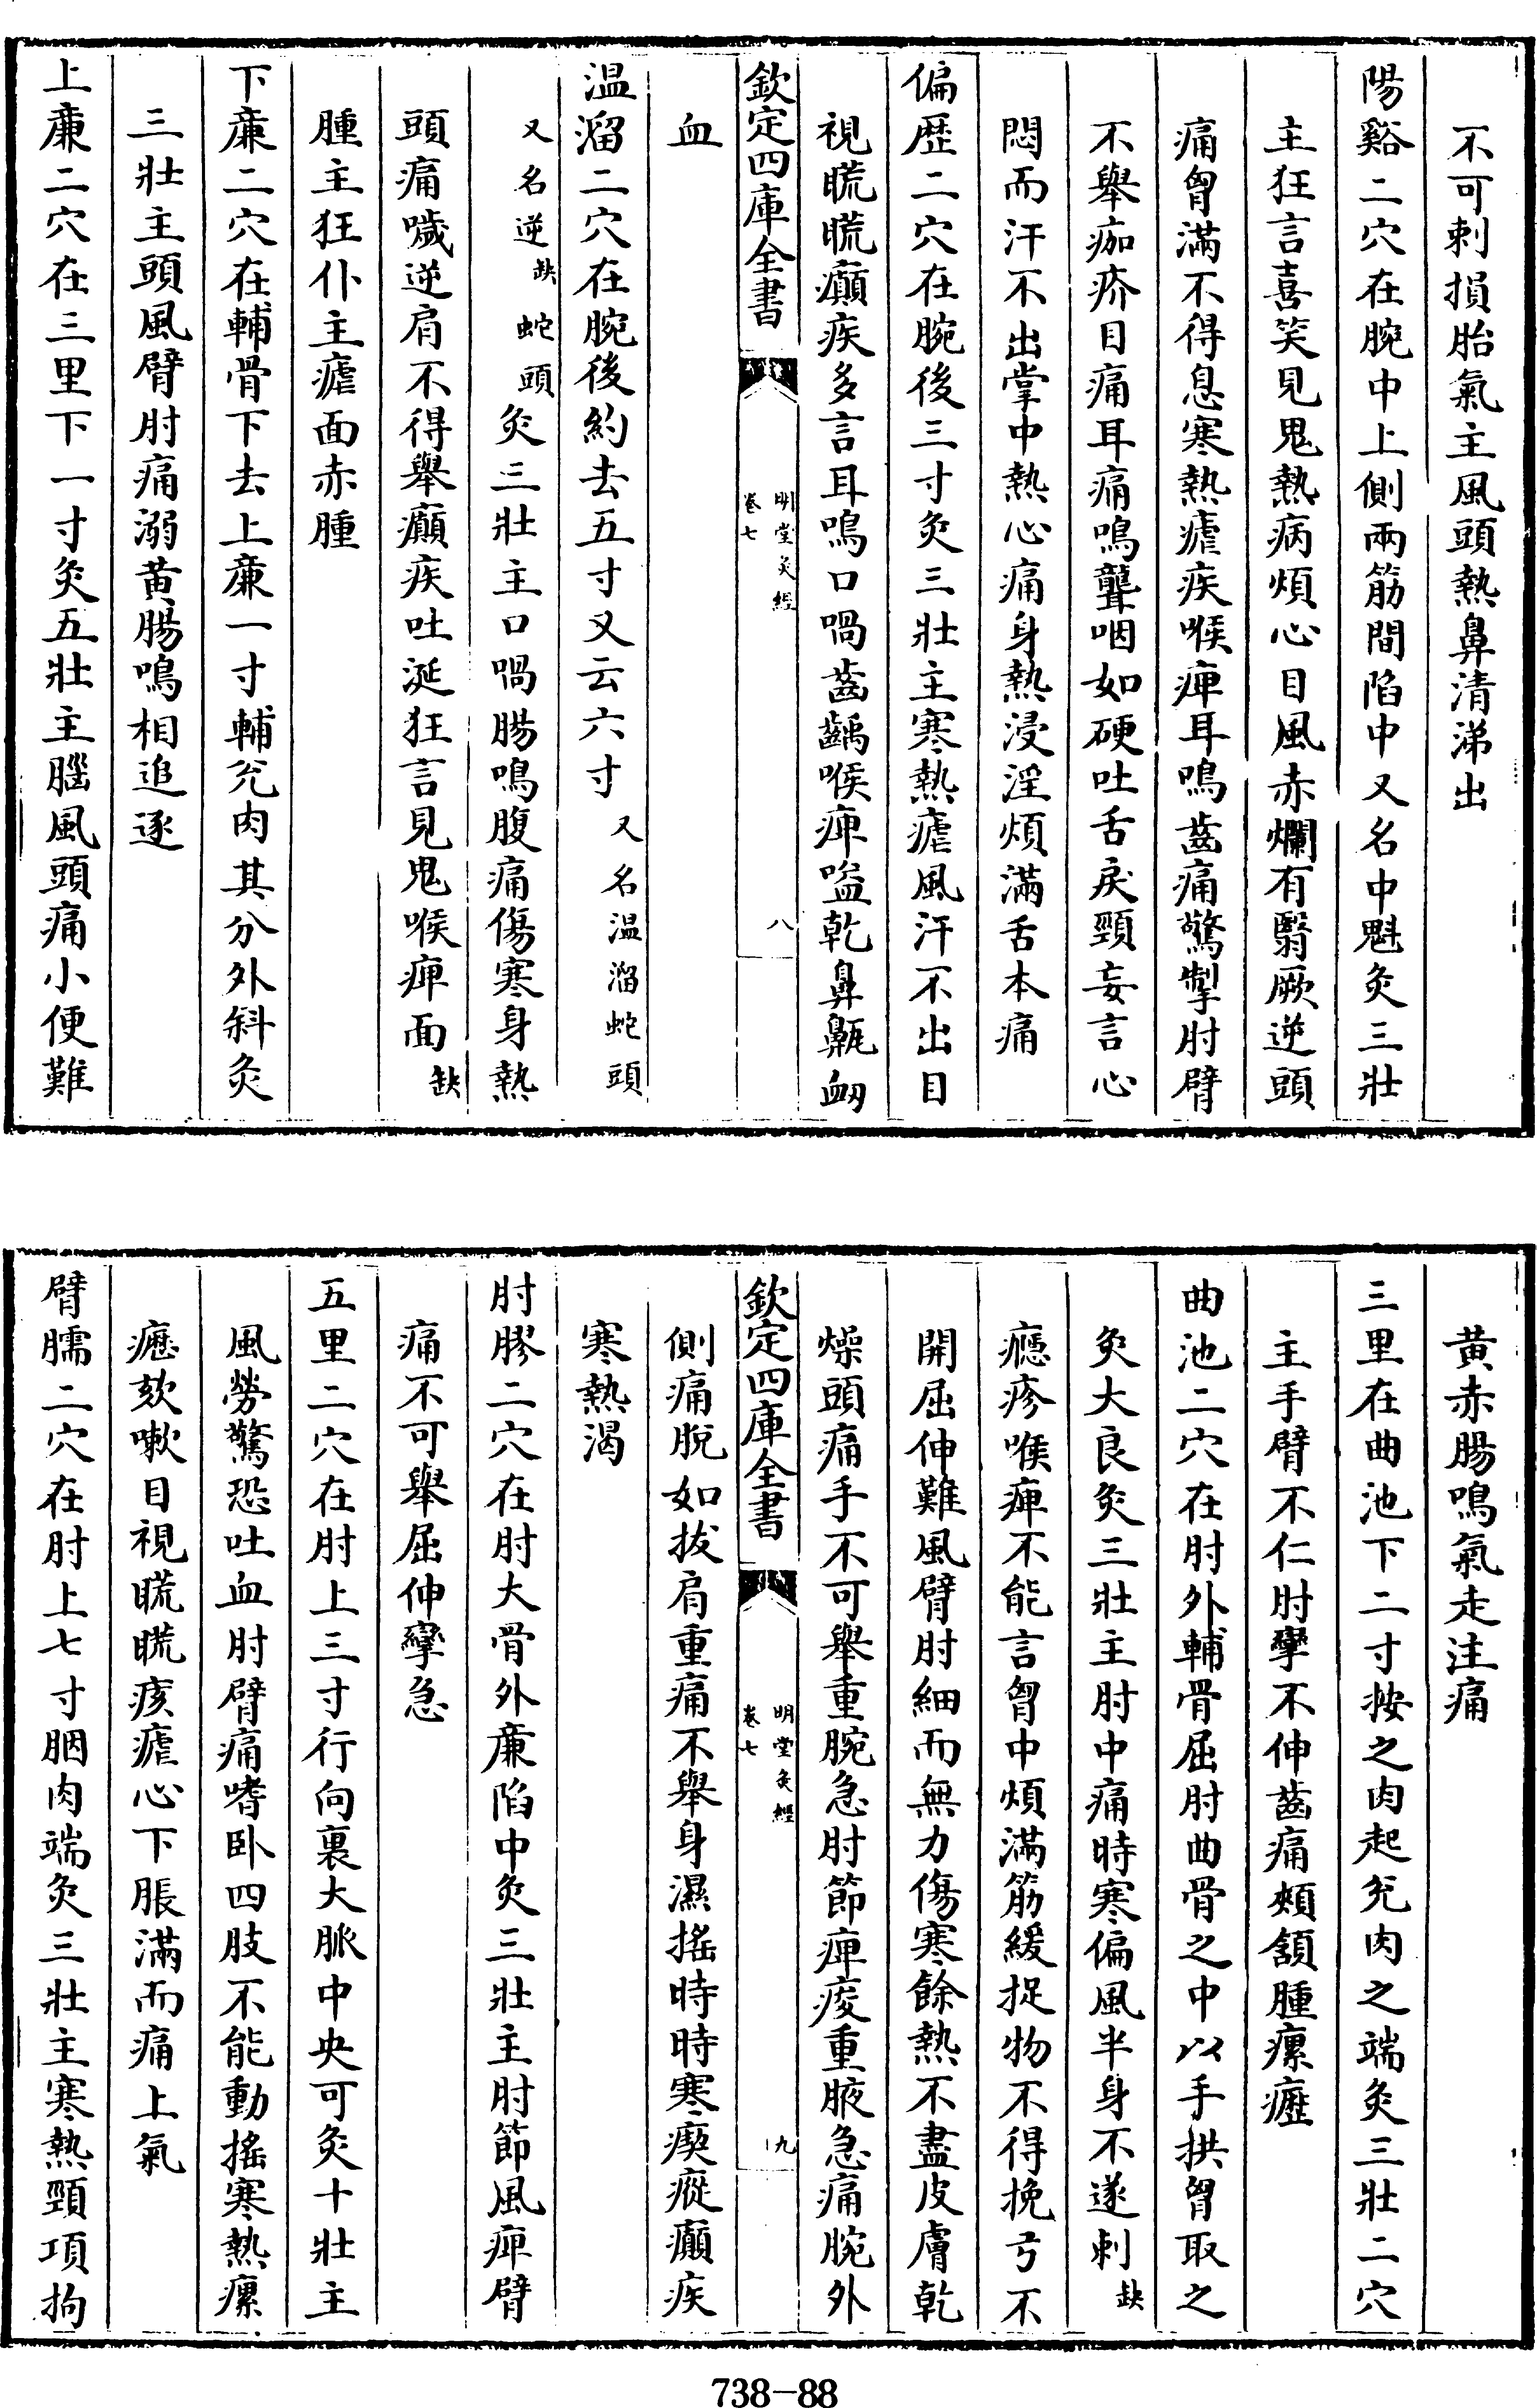 不可刺損胎氣主風頭熱鼻清涕出
陽谿二穴在腕中上側兩筋間陷中又名中魁灸三壯
主狂言喜笑見鬼熱病煩心目風赤爛有翳厥逆頭
痛胷滿不得息寒熱瘧疾喉痺耳鳴齒痛驚掣肘臂
不舉痂疥目痛耳痛鳴聾咽如硬吐舌戾頸妄言心
悶而汗不出掌中熱心痛身熱浸淫煩滿舌本痛
偏歴二穴在腕後三寸灸三壯主寒熱瘧風汗不出目
視𥆨𥆨癲疾多言耳鳴口喎齒齲喉痺嗌乾鼻鼽衂
欽定四庫全書
明堂灸經
卷七
八
血
温溜二穴在腕後約去五寸又云六寸又名温溜蛇頭
又名逆缺蛇頭灸三壯主口喎腸鳴腹痛傷寒身熱
頭痛噦逆肩不得舉癲疾吐涎狂言見鬼喉痺面缺
腫主狂仆主瘧面赤腫
下亷二穴在輔骨下去上亷一寸輔兊肉其分外斜灸
三壯主頭風臂肘痛溺黄腸鳴相追逐
上亷二穴在三里下一寸灸五壯主腦風頭痛小便難
黄赤腸鳴氣走注痛
三里在曲池下二寸按之肉起兊肉之端灸三壯二穴
主手臂不仁肘攣不伸齒痛頰頷腫瘰癧
曲池二穴在肘外輔骨屈肘曲骨之中以手拱胷取之
灸大良灸三壯主肘中痛時寒偏風半身不遂刺缺
癮疹喉痺不能言胷中煩滿筋緩捉物不得挽弓不
開屈伸難風臂肘細而無力傷寒餘熱不盡皮膚乾
燥頭痛手不可舉重腕急肘節痺痠重腋急痛腕外
欽定四庫全書
明堂灸經
卷七
九
側痛脫如拔肩重痛不舉身濕搖時時寒瘈瘲癲疾
寒熱渴
肘膠二穴在肘大骨外亷陷中灸三壯主肘節風痺臂
痛不可舉屈伸攣急
五里二穴在肘上三寸行向裏大脈中央可灸十壯主
風勞驚恐吐血肘臂痛嗜卧四肢不能動搖寒熱瘰
癧欬嗽目視𥆨𥆨痎瘧心下脹滿而痛上氣
臂臑二穴在肘上七寸䐃肉端灸三壯主寒熱頸項拘
738-88